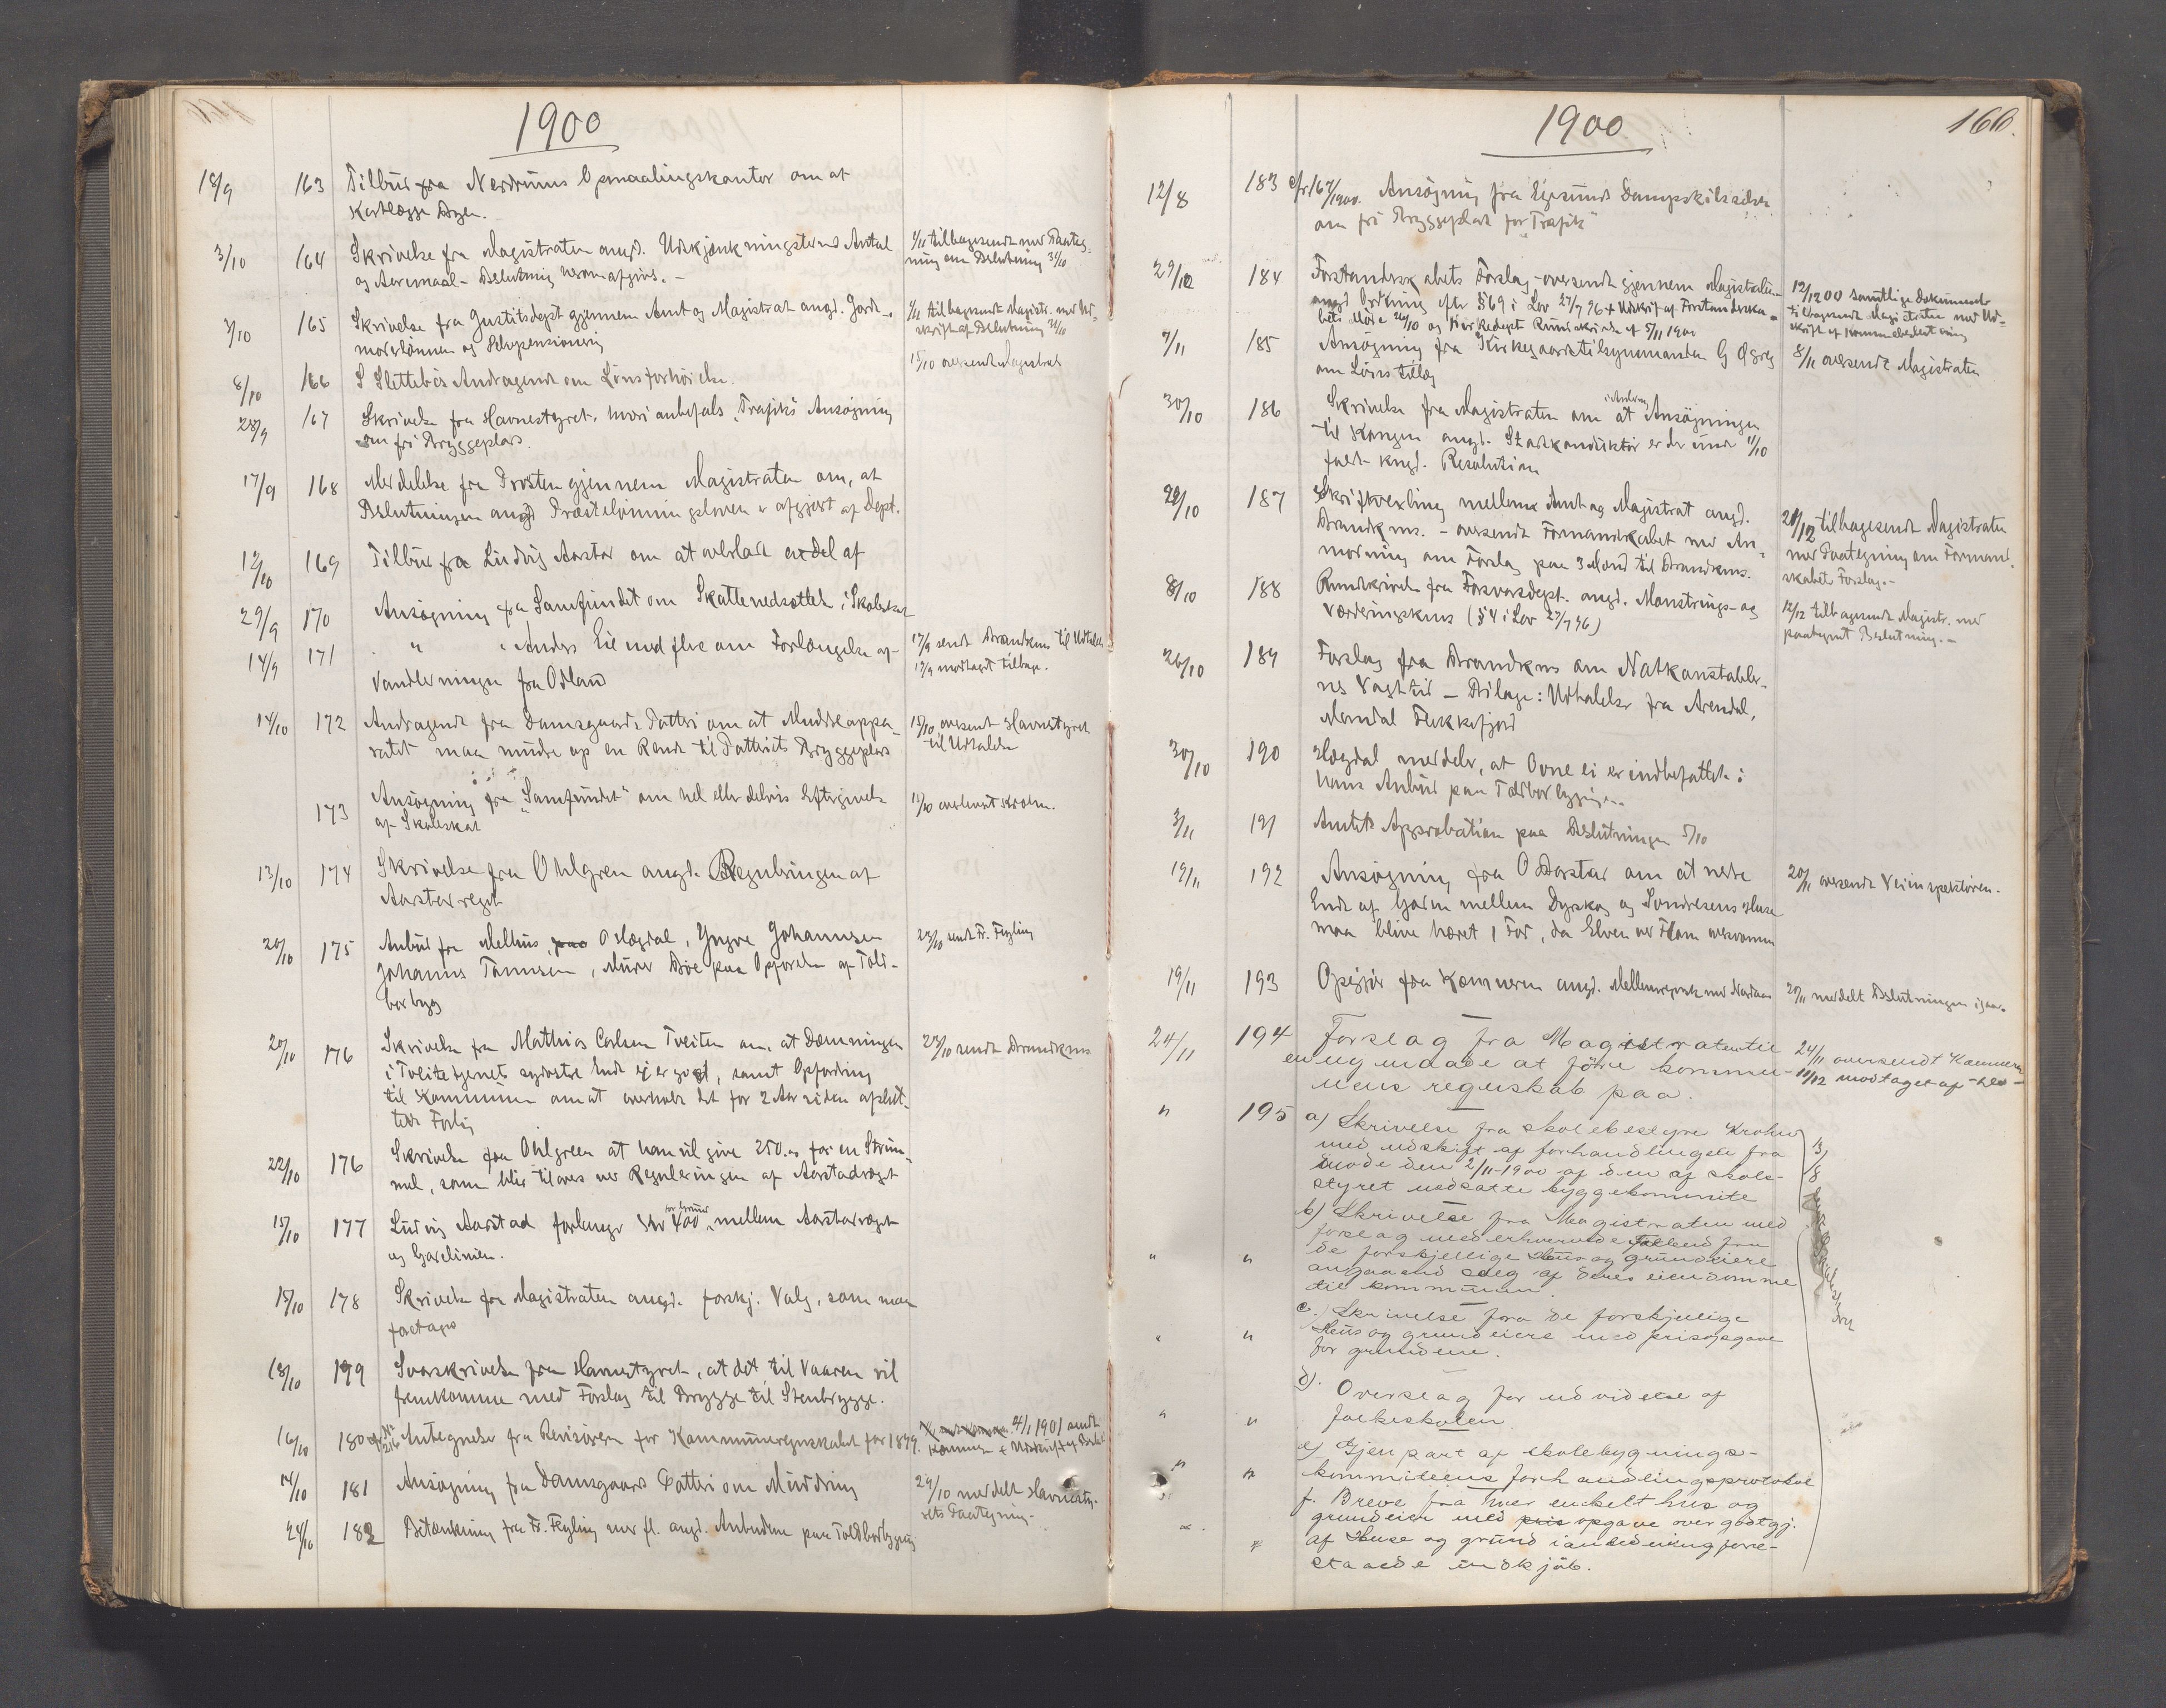 1900
18/9 163 Tilbud fra Nerdrums Opmaalingskontor om at
kartlægge Byen.
3/10 164 Skrivelse fra Magistraten angd. Udskjænkningstedets Antal
og Aaremaal - Beslutning herom afgives. -
1/11 tilbagesendt med Paateg-
ning om Beslutning 31/10
3/10 165 Skrivelse fra Justitsdept gjennem Amt og Magistrat angd. Jord-
moderlønnen og Pensionering
1/11 tilbagesendt Magistr. med Ud-
skrift af Beslutning 31/10
8/10 166 S Slettebøs Andragende om Lønsforhøielse.
15/10 oversendt Magistrat
28/9 167 Skrivelse fra Havnestyret, hvori anbefales "Trafik"s Ansøgning
om fri Bryggeplads.
17/9 168 Meddelelse fra Provsten gjennem Magistraten om, at
Beslutningen angd Præstelønningsloven er afgjort af Dept.
12/10 169 Tilbud fra Ludvig Aarstad om at overlade en del af
29/9 170 Ansøgning fra Samfundet om Skattenedsættelse i Skoleskat
14/9 171 " " Anders Eie med flere om Forlængelse af
Vandledningen fra Odland
17/9 sendt Brandkms til Udtalelse
17/9 modtaget tilbage.
14/10 172 Andragende fra Damsgaards Potteri om at Mudderappa-
ratet maa mudre op en Rende til Potteriets Bryggeplads
15/10 oversendt Havnestyret
til Udtalelse
173 Ansøgning fra "Samfundet" om hel eller delvis Eftergivelse
af Skoleskat
13/10 174 Skrivelse fra Ohlgren angd. Reguleringen af
Aarstadveget
20/10 175 Anbud fra Melhus, O Hægdal, Yngve Johannsen
Johannes Tønnesen, Murer Bøe paa Opførelse af Told-
bodbygg
23/10 sendt Fr. Feyling
20/10 176 Skrivelse fra Mathias Carlsen Tveiten om, at Dæmningen
i Tveitetjenets sydøstre Ende ej er god, samt Opfordring
til Kommunen om at overholde det for 2 Aar siden afslut-
tede Forlig
23/10 sendt Brandkms
22/10 176 Skrivelse fra Ohlgreen at han vil give 250.00 for en Strim-
mel, som blir tilovers ved Reguleringen af Aarstadveget
15/10 177 Ludvig Aarstad forlanger Kr 400 for Grund mellem Aarstadveget
og Gadelinien.
15/10 178 Skrivelse fra Magistraten angd. forskj. Valg, som maa
foretages
18/10 199 Svarskrivelse fra Havnestyret, at det til Vaaren vil
fremkomme med Forslag til Brygge til Stenbrygge.
16/10 180 Antegnelser fra Revisionen for Kommuneregnskabet for 1899.
4/1 1901 sendt
Kæmner + Udskrift af Besl.
14/10 181 Ansøgning fra Damsgaards Potteri om Muddring
29/10 meddelt Havnesty-
rets Paategning.
24/10 182 Betænkning fra Fr. Feyling med fl. angd. Anbudene paa Toldbodbygning
1900
166.
12/8 183 cfr 167/1900. Ansøgning fra Egersunds Dampskibsselsk
om fri Bryggeplads for "Trafik"
29/10 184 Forstanderskabets Forslag - oversendt gjennem Magistraten
angd Ordning efter § 69 i Lov 27/7 96 + Udskrift af Forstanderska-
bets Møde 26/10 og Kirkedept Rundskrivelse af 5/11 1900
12/12 00 samtlige Dokumenter
tilbagesendt Magistraten med Ud-
skrift af Kommunebeslutning
7/11 185 Ansøgning fra Kirkegaardstilsynsmanden G Ø
om Lønstillæg
8/11 oversendt Magistraten
30/10 186 Skrivelse fra Magistraten om at i Anledning Ansøgningen
til Kongen angd. Stadskonduktør er der under 11/10
faldt kngl. Resolution
22/10 187 Skriftvexling mellem Amt og Magistrat angd.
Brandkms. - oversendt Formandskabet med An-
modning om Forslag paa 3 Mænd til Brandkms.
21/12 tilbagesendt Magistraten
med Paategning om Formand-
skabets Forslag. -
8/10 188 Rundskrivelse fra Forsvarsdept. angd. Mønstrings- og
Værderingskms (§ 4 i Lov 27/7 96)
12/12 tilbagesendt Magistr. med
paategnet Beslutning. -
26/10 189 Forslag fra Brandkms om Natkonstabler-
nes Vagttid - Bilage: Udtalelser fra Arendal,
Mandal Flekkefjord
30/10 190 Hægdal meddeler, at Ovne ei er indbefattet i
hans Anbud paa Toldbodbygningen
3/11 191 Amtets Approbation paa Beslutningen 5/10
19/11 192 Ansøgning fra O Aarstad om at nedre
Ende af Gaden mellem Dyrskog og Sondresens Huse
maa blive hævet 1 Fod, da Elven ved Flom oversvømm
20/11 oversendt Veiinspektøren.
19/11 193 Opgjør fra Kæmneren angd. Mellemregnsk med
20/11 meddelt Beslutningen igaar.
24/11 194 Forslag fra Magistraten til
en ny maade at føre kommu-
nens regnskab paa.
24/11 oversendt Kæmneren
11/12 modtaget af -do-
" 195 a) Skrivelse fra skolebestyre Krohn
med udskrift af forhandlingen fra
møde den 2/11-1900 af den af skole-
styret nedsatte byggekommite
b) Skrivelse fra Magistraten med
forslag med erhvervede Tilbud fra
" " de forskjellige Hus og grundeiere
angaaend salg af deres eiendomme
til kommunen.
c.) Skrivelse fora de forskjellige
" " Hus og grundeiere med prisopgave
for grundene.
d). Overslag for udvidelse af
" " folkeskolen.
e) Gjenpart af skolebygnings-
" " kommiteens forhandlingsprotokol
f. Breve fra hver enkelt hus og
grundeier med pris opgave over godtgj.
" " af Huse og grund i andledning fore-
staaede indkjøb.